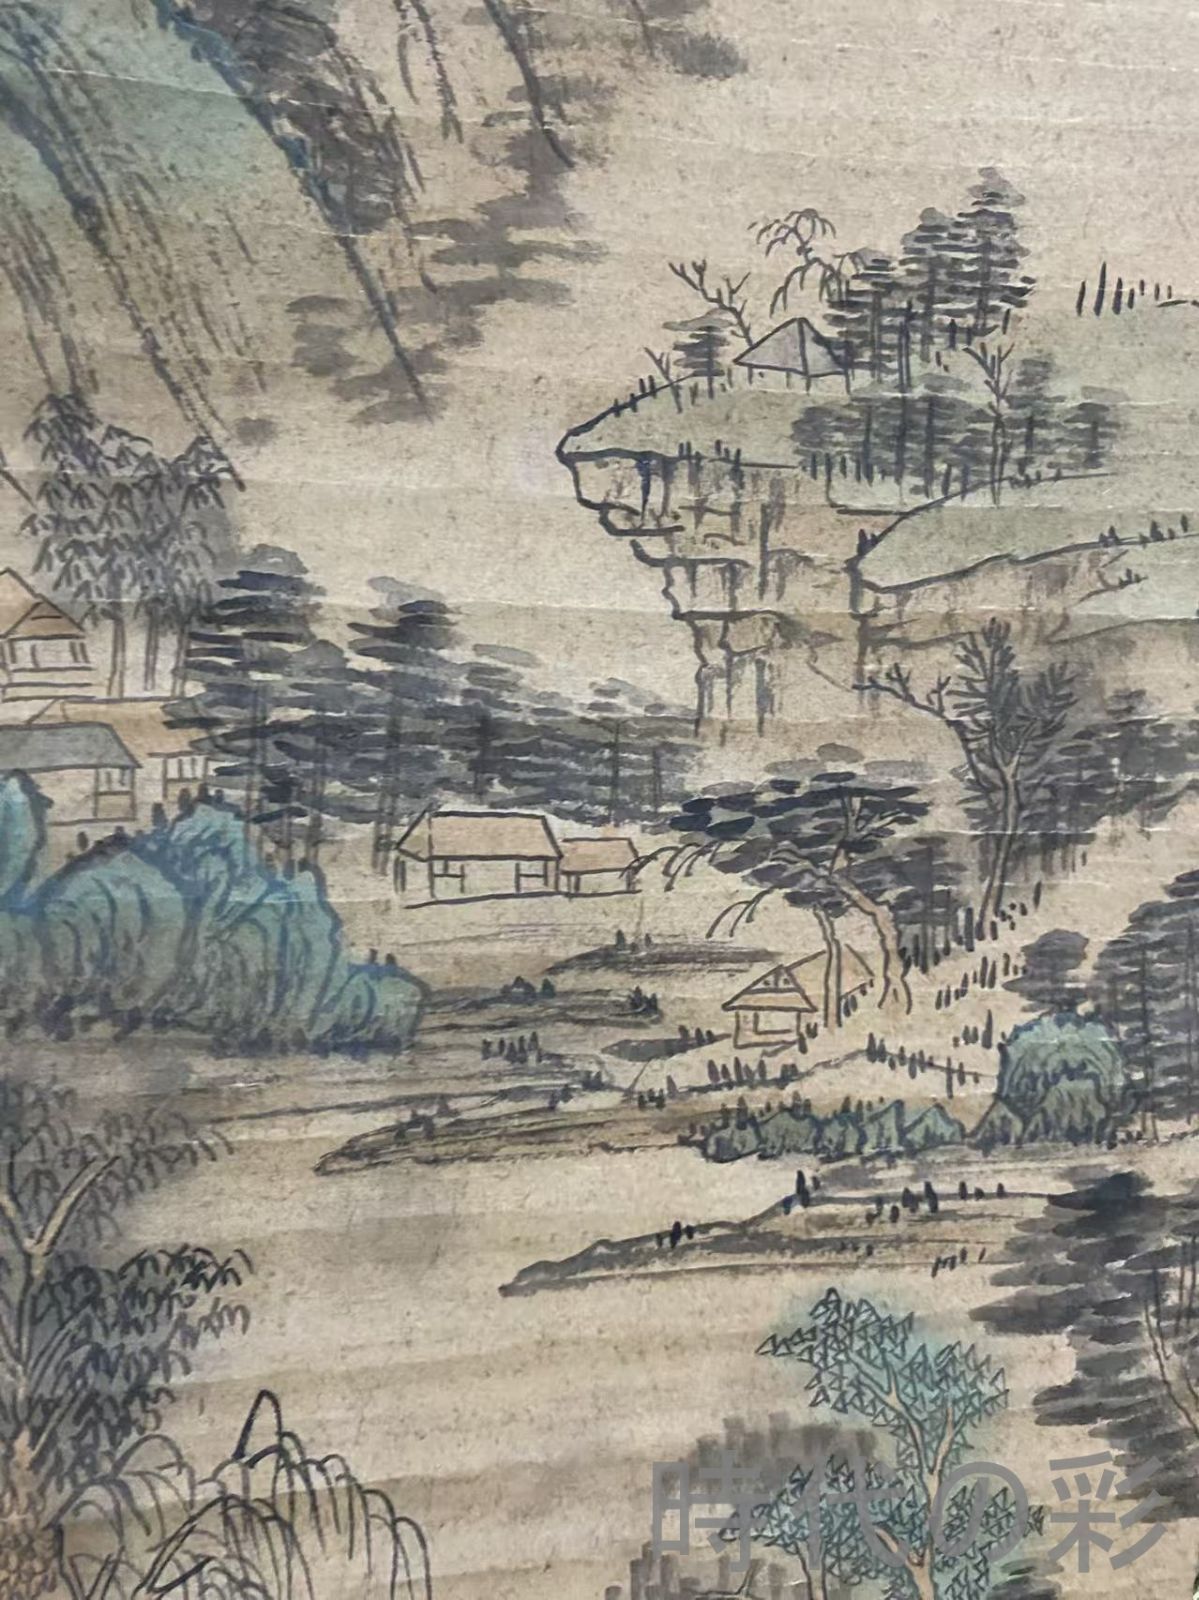 時代の彩